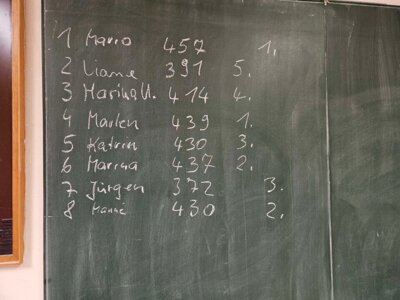 1 Mario 457 1.
2 Liane 391 5.
3 Marina U. 414 4.
4 Marlen 439 1.
5 Katrin 430 3.
6 Marina 437 2.
7 Jürgen 372 3.
8 Manne 430 2.